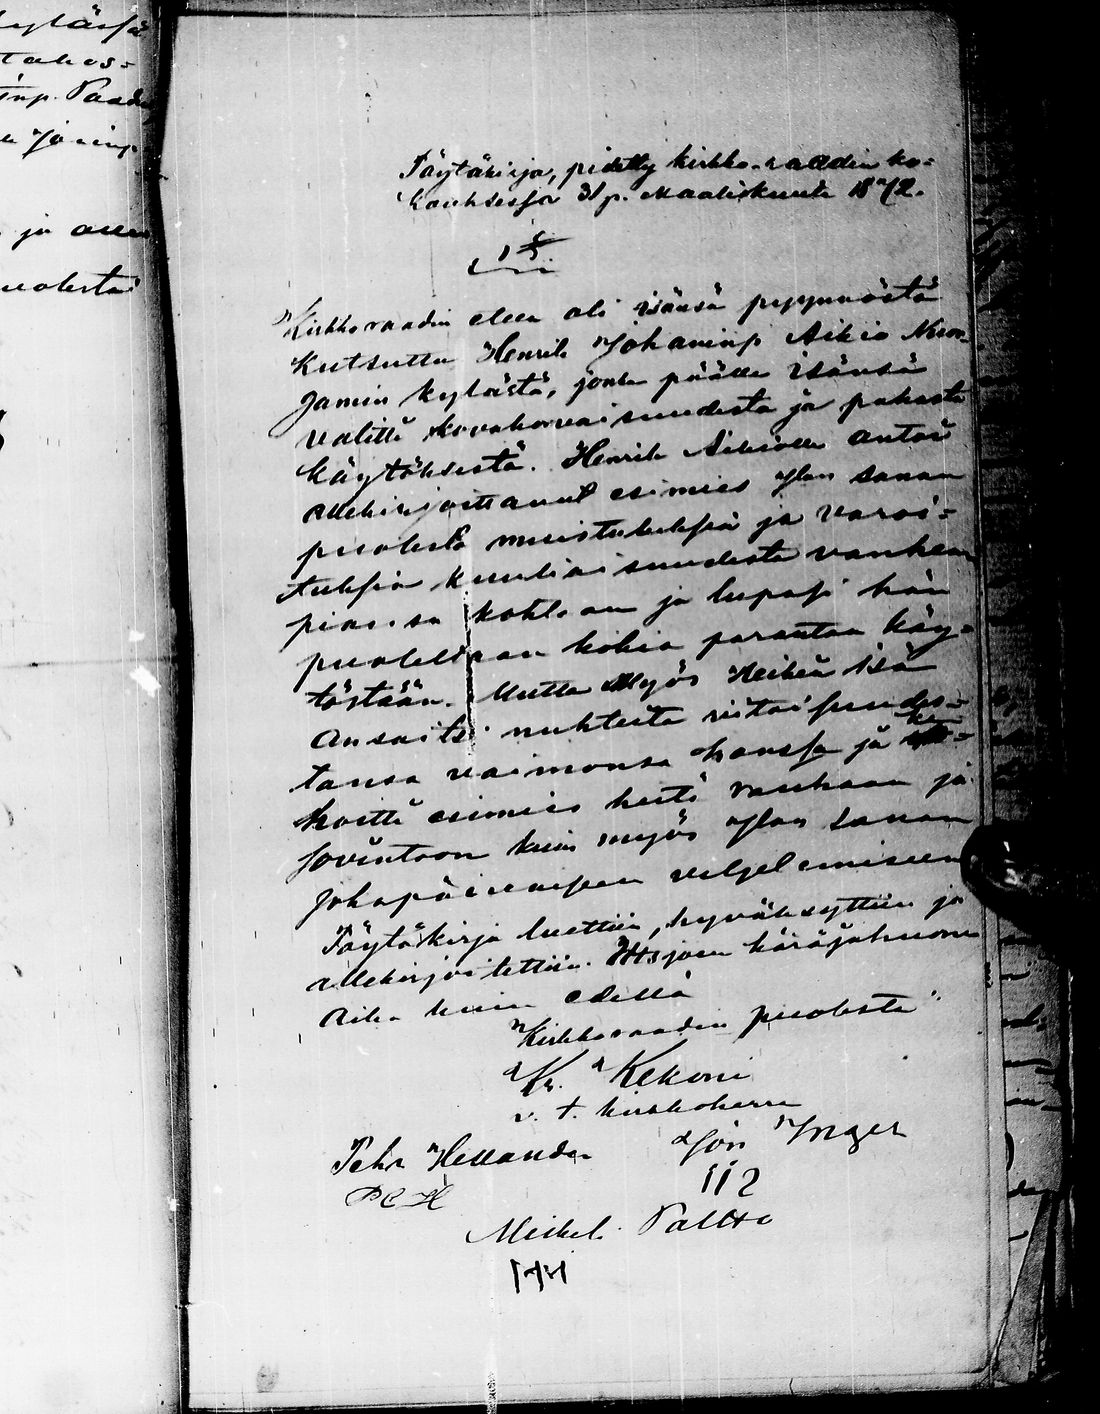 kylässä
takas=
inp. Paad
Joninp
ja asee
uolesta
Pöytäkirja, pidetty kirkko-raadin ko=
kouksessa 31 p. Maaliskuuta 1872.
1 §
Kirkkoraadin eteen oli isänsä pyynnöstä
kutsuttu Henrik Johaninp Aikio Nuor-
jamin kylästä, jonka päälle isänsä
valitti kovakorvaisuudesta ja pahasta
käytöksestä. Henrik Aikiolle antoi
allekirjoittanut esimies Jlan sanan
puolesta muistutuksia ja varoi=
tuksia kuuliaisuudesta vanhem
piansa kohtaan ja lupasi hän
puolestaan kokea parantaa käy=
töstään. Mutta Myös Heikin isä
ansaitsi nuhteita riitaisuudes=
tansa vaimonsa kanssa ja ke=
hoitti esimies heitä rauhaan ja
sovintoon kuin myös Jlan sanan
jokapäiväiseen viljelemiseen
Pöytäkirja luettiin, hyväksyttiin ja
allekirjoitettiin. Utsjoen käräjähuone
aika kuin edellä
Kirkkoraadin puolesta
Kr. Kekoni
v. t. kirkkoherra
Pehr Hellander Jon Inger
P C H 112
Mickel. Paltto